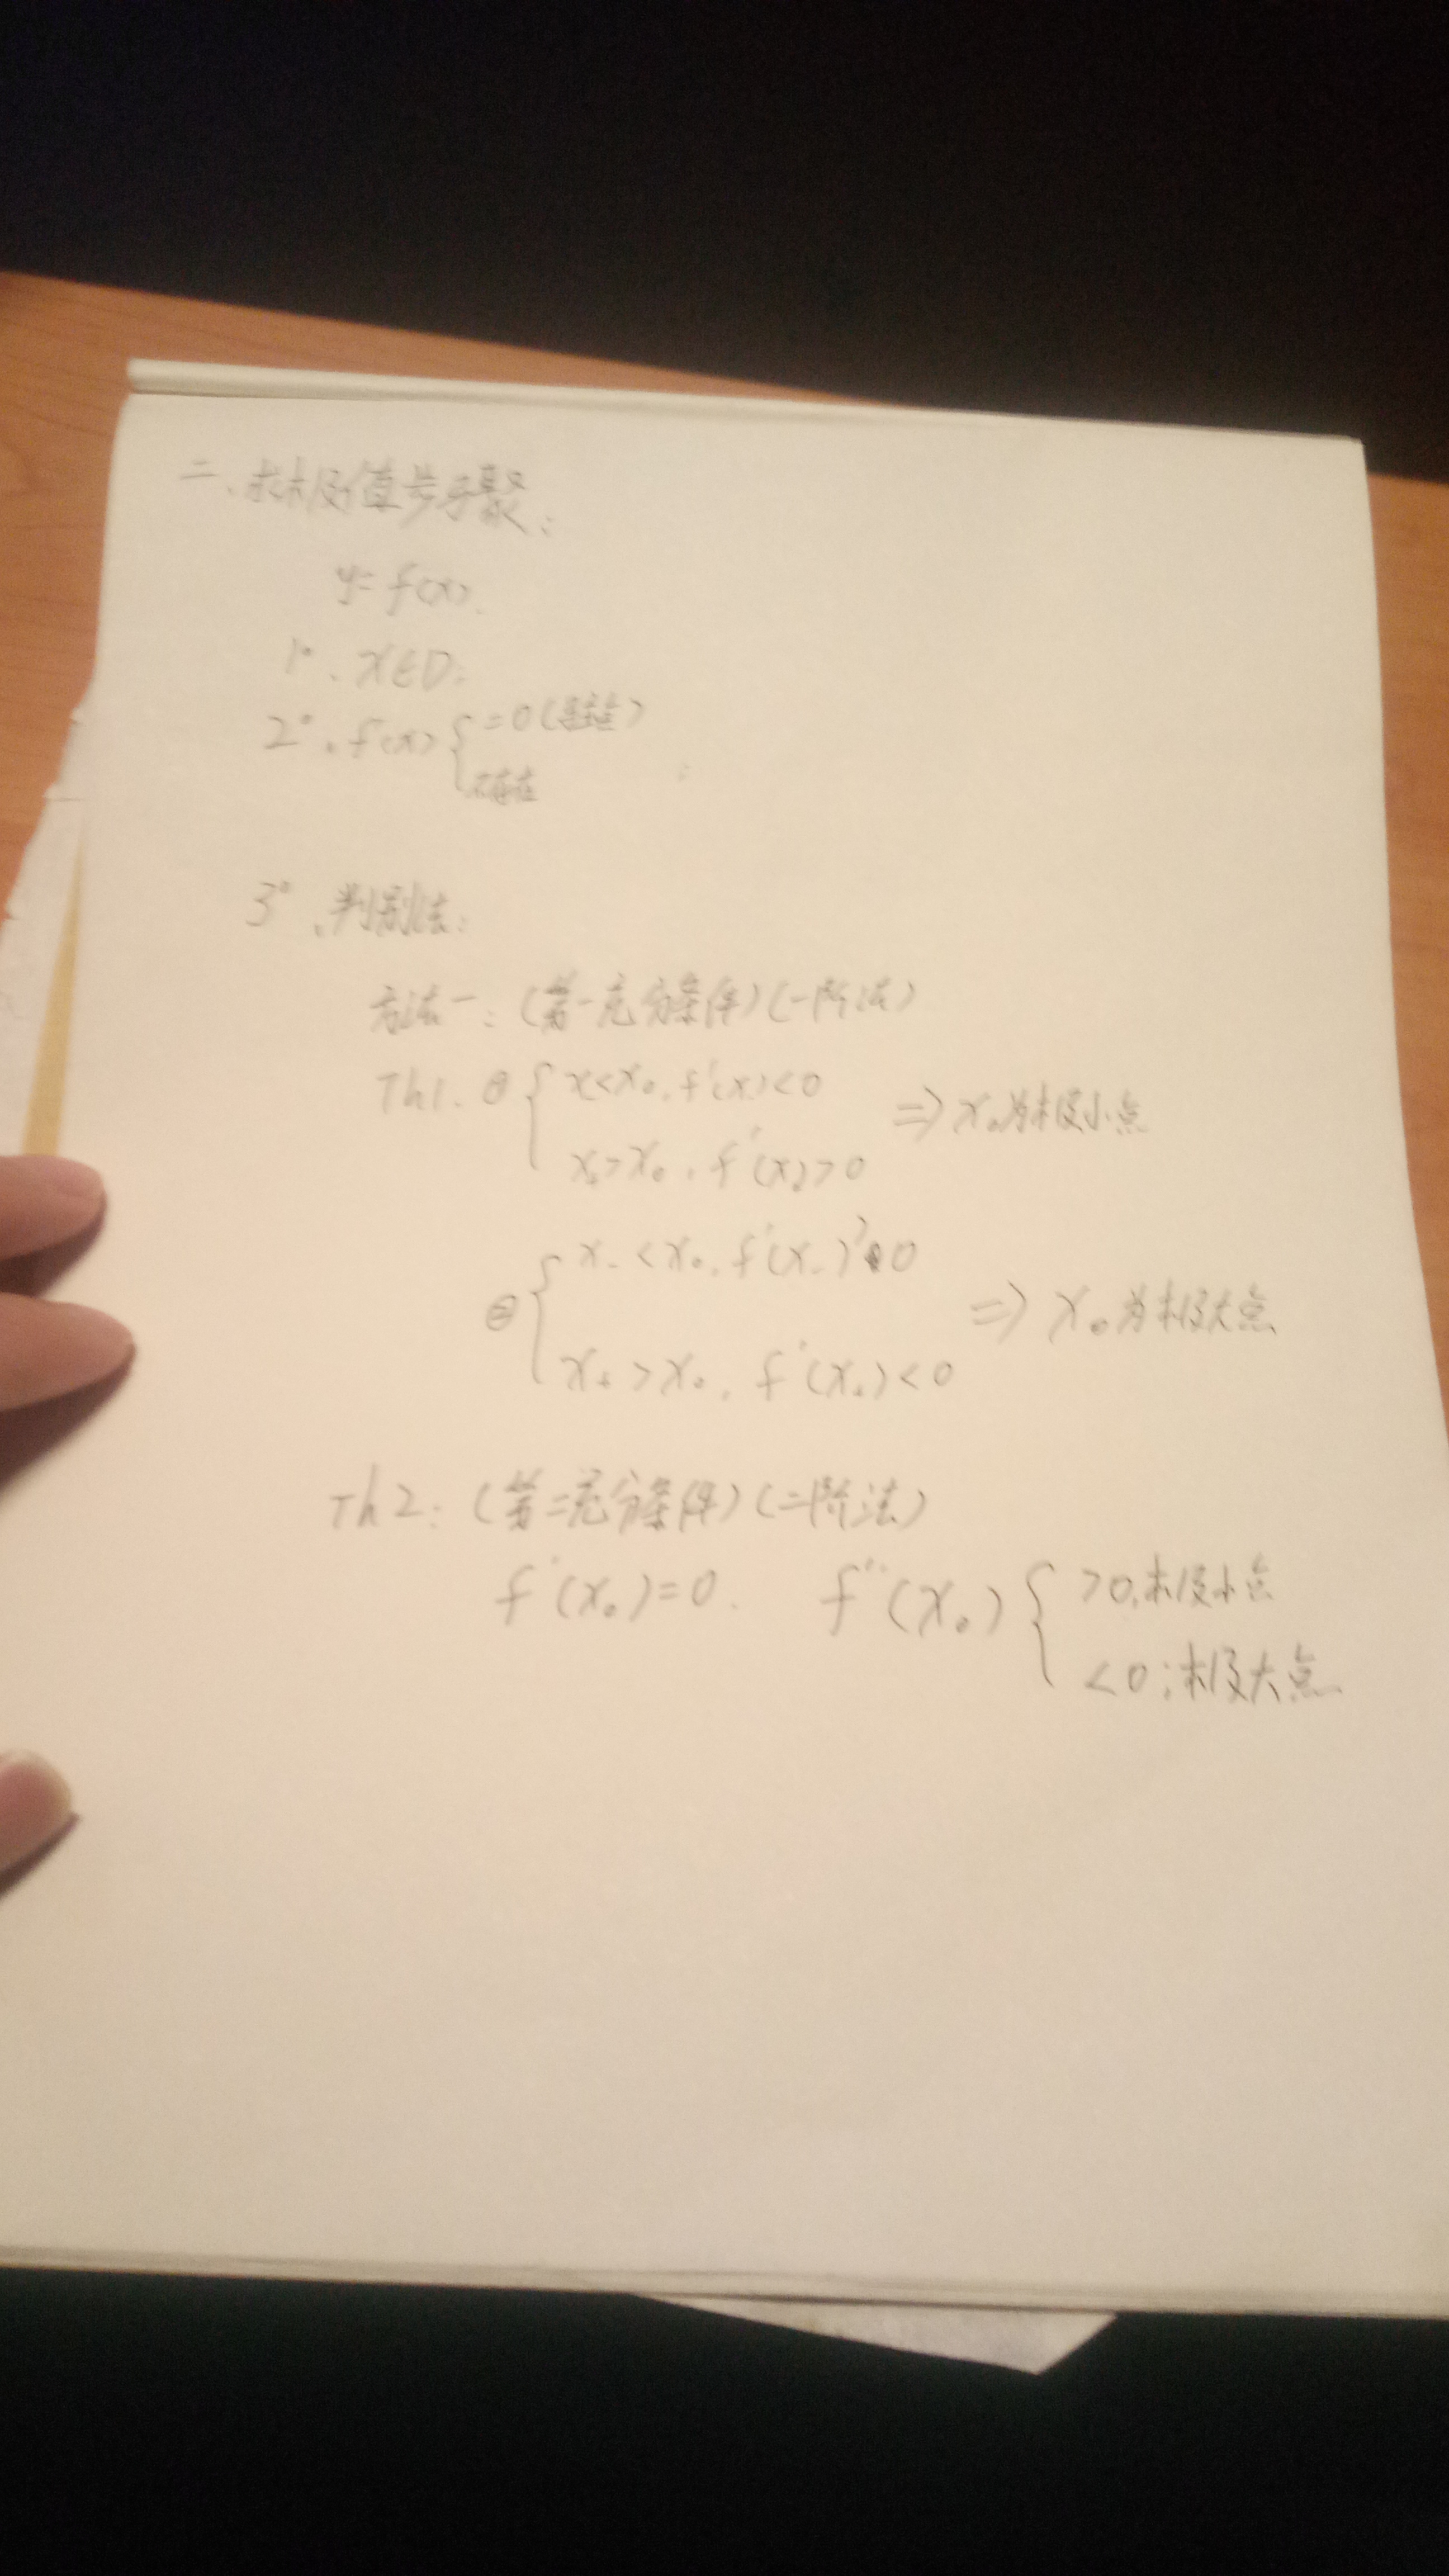 二、求极值步骤:
y=f(x).
1°. x∈D:
2°. f'(x) { =0(驻点)
不存在
3°、判别法:
方法一:(第一充分条件)(一阶法)
Th1. ① { x<x₀, f'(x)<0
x₊>x₀, f'(x₊)>0 ⇒ x₀为极小点
② { x₋<x₀, f'(x₋)>0
x₊>x₀, f'(x₊)<0 ⇒ x₀为极大点
Th2:(第二充分条件)(二阶法)
f'(x₀)=0. f''(x₀) { >0,极小点
<0;极大点